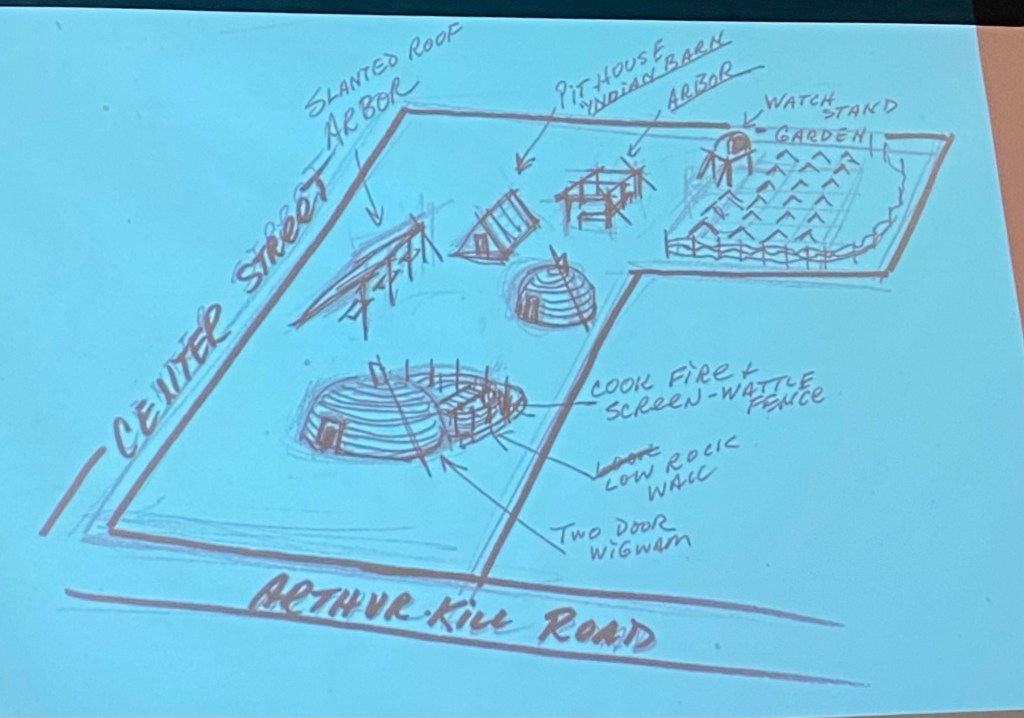 SLANTED ROOF
ARBOR
PIT HOUSE
"INDIAN BARN
ARBOR
WATCH
STAND
GARDEN
CENTER STREET
COOK FIRE +
SCREEN-WATTLE
FENCE
LOW ROCK
WALL
TWO DOOR
WIGWAM
ARTHUR KILL ROAD